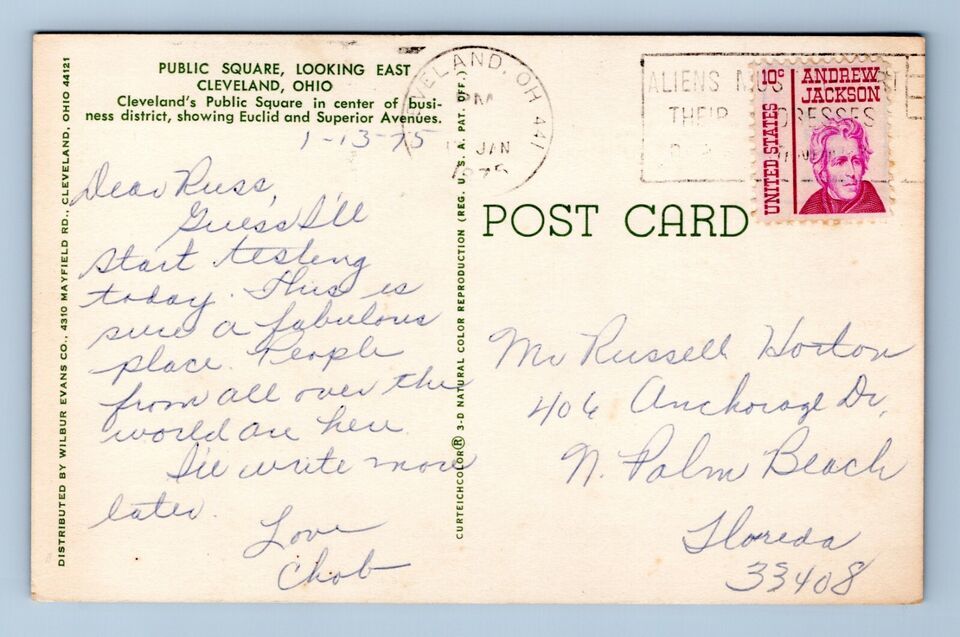 PUBLIC SQUARE, LOOKING EAST
CLEVELAND, OHIO
Cleveland's Public Square in center of busi-
ness district, showing Euclid and Superior Avenues.
1-13-75
Dear Russ,
Guess I'll
start testing
today. This is
sure a fabulous
place. People
from all over the
world are here.
I'll write more
later.
Love
Chob
DISTRIBUTED BY WILBUR EVANS CO., 4310 MAYFIELD RD., CLEVELAND, OHIO 44121
CURTEICHCOLOR® 3-D NATURAL COLOR REPRODUCTION (REG. U.S.A. PAT. OFF.)
CLEVELAND, OH 441
PM
JAN
1975
ALIENS MUS
THEIR DRESSES
10c
ANDREW
JACKSON
UNITED STATES
POST CARD
Mr Russell Horton
406 Anchorage Dr.
N. Palm Beach
Floreda
33408